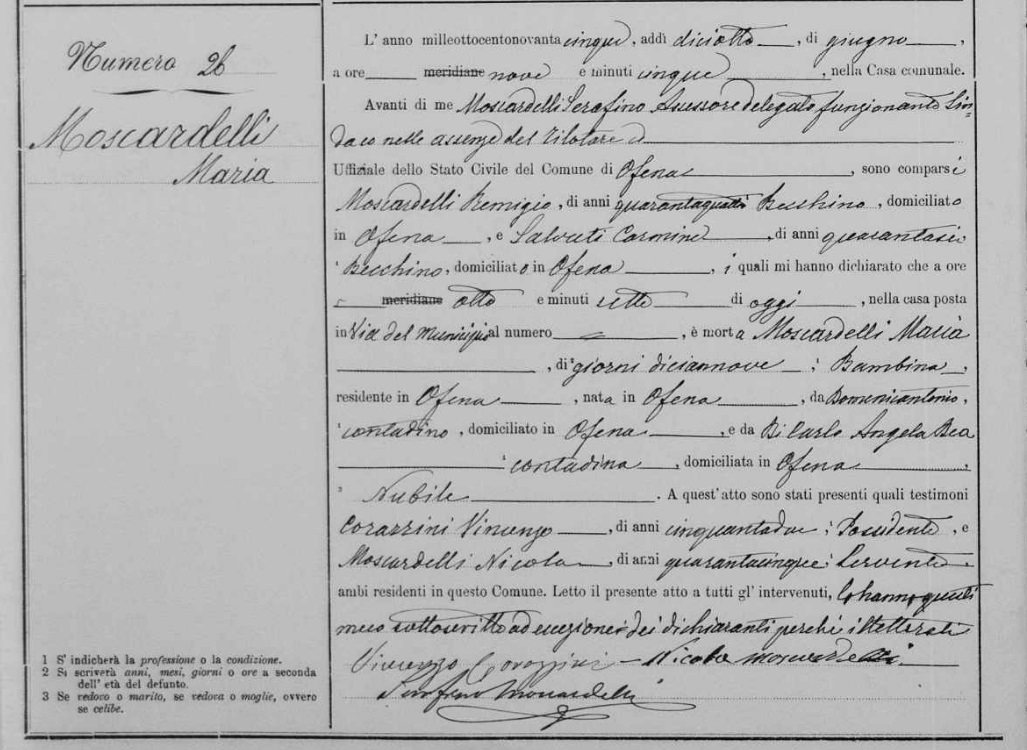 Numero 26
Moscardelli
Maria
L' anno milleottocentonovanta cinque, addì diciotto, di giugno,
a ore meridiane nove e minuti cinque, nella Casa comunale.
Avanti di me Moscardelli Serafino Assessore delegato funzionante Sin=
daco nelle assenze del titolare
Uffiziale dello Stato Civile del Comune di Ofena, sono comparsi
Moscardelli Remigio, di anni quarantaquattro Becchino, domiciliato
in Ofena, e Salvati Carmine, di anni quarantasei
Becchino, domiciliato in Ofena, i quali mi hanno dichiarato che a ore
meridiane otto e minuti sette di oggi, nella casa posta
in Via del Municipio al numero, è morta Moscardelli Maria
, di giorni diciannove, Bambina,
residente in Ofena, nata in Ofena, da Domenicantonio,
contadino, domiciliato in Ofena, e da Di Carlo Angela Rea
contadina, domiciliata in Ofena,
3 Nubile. A quest'atto sono stati presenti quali testimoni
Corazzini Vincenzo, di anni cinquantadue, Possidente, e
Moscardelli Nicola, di anni quarantacinque Servente,
ambi residenti in questo Comune. Letto il presente atto a tutti gl' intervenuti, lo hanno questi
meco sottoscritto ad eccezione dei dichiaranti perché illetterati
Vincenzo Corazzini – Nicola Moscardelli
Serafino Moscardelli
1 S' indicherà la professione o la condizione.
2 Si scriverà anni, mesi, giorni o ore a seconda
dell' età del defunto.
3 Se vedovo o marito, se vedova o moglie, ovvero
se celibe.